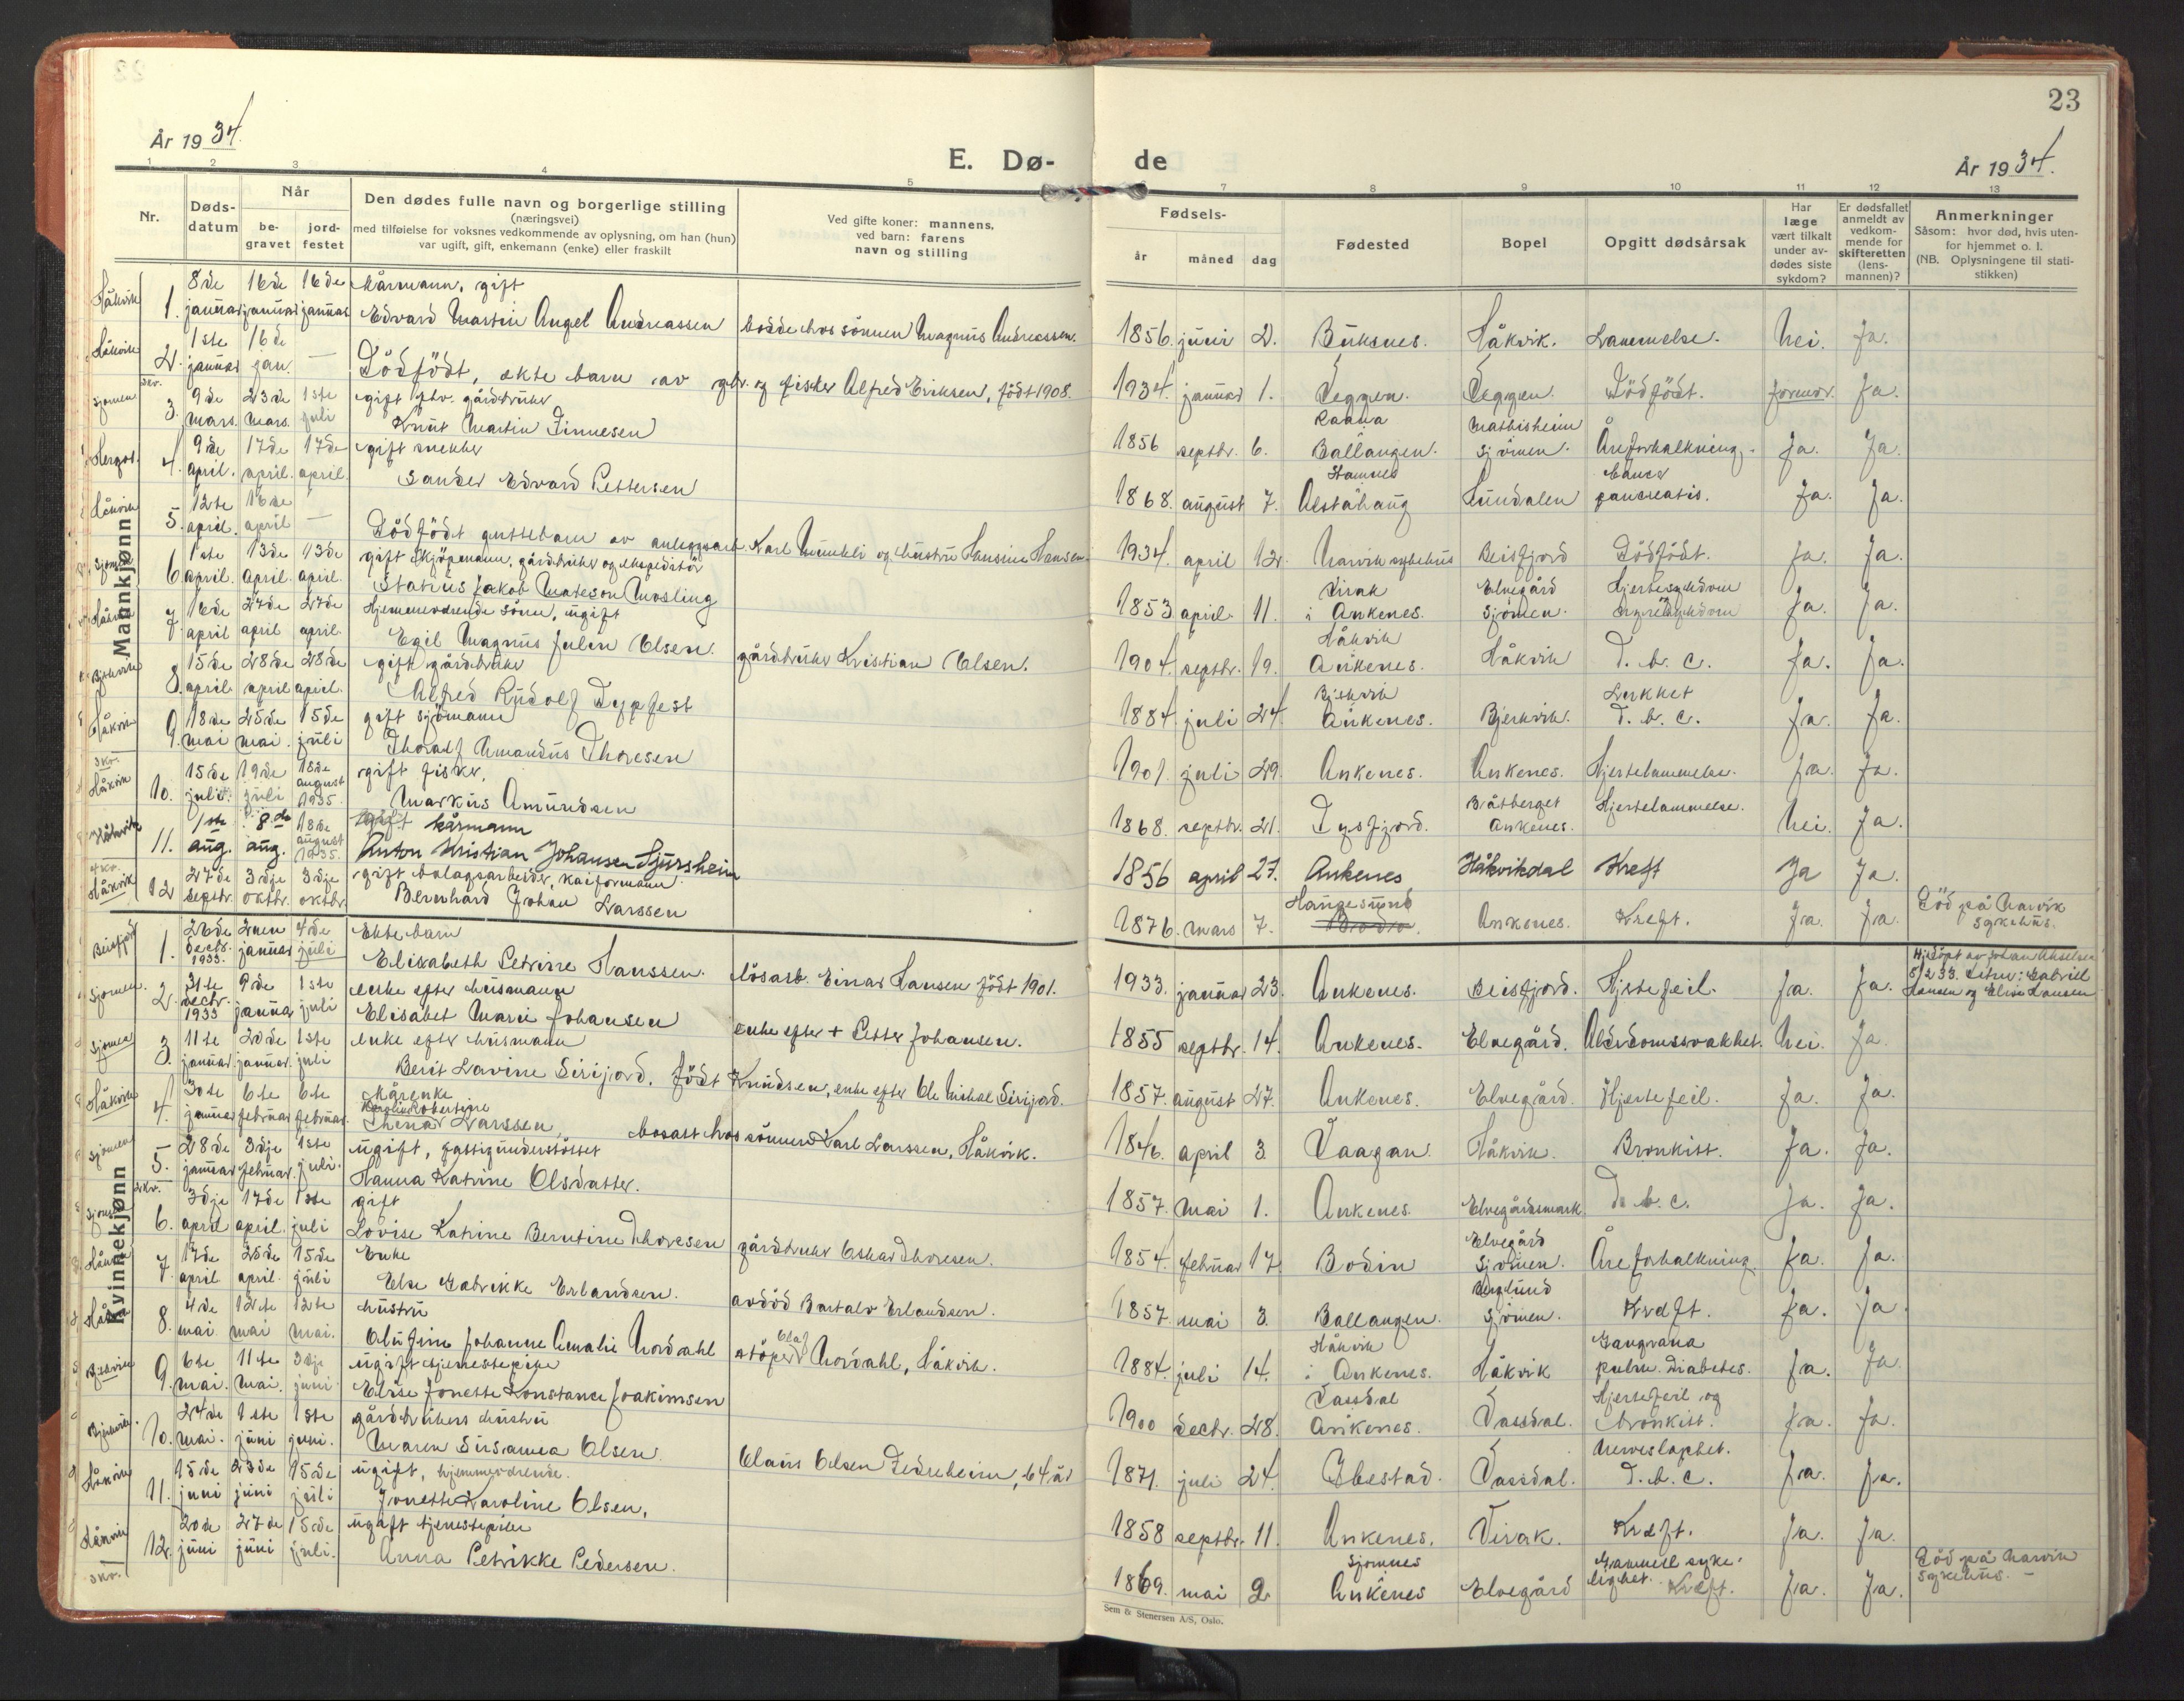 23
År 1934.
E. Dø- de
År 1934.
1 2 3 4 5 7 8 9 10 11 12 13
Nr.
Døds-
datum
Når
be-
gravet
jord-
festet
Den dødes fulle navn og borgerlige stilling
(næringsvei)
med tilføielse for voksnes vedkommende av oplysning, om han (hun)
var ugift, gift, enkemann (enke) eller fraskilt
Ved gifte koner: mannens,
ved barn: farens
navn og stilling
Fødsels-
år måned dag
Fødested
Bopel
Opgitt dødsårsak
Har
læge
vært tilkalt
under av-
dødes siste
sykdom?
Er dødsfallet
anmeldt av
vedkom-
mende for
skifteretten
(lens-
mannen)?
Anmerkninger
Såsom: hvor død, hvis uten-
for hjemmet o. l.
(NB. Oplysningene til stati-
stikken)
Mannkjønn
Håkvik 1. 8de januar 16de januar 16de januar Kårmann, gift
Edvard Martin Angel Andreassen bodde hos sönnen Magnus Andreassen. 1856. juni 2. Buksnes. Håkvik. Lammelse. Nei. Ja.
Håkvik 2. 1ste januar 16de jan. —
Dödfödt, ekte barn av gbr. og fisker Alfred Eriksen, födt 1908. 1934. januar 1. Veggen. Veggen. Dödfödt. Jormor. Ja.
Sjomen 3. 9de mars. 23de mars. 1ste juli gift fhv. gårdbruker
Knut Martin Finnesen 1856 septbr. 6. Raana Ballangen. Mathisheim Sjomen. Åreforkalkning. Ja. Ja.
4. 9de april. 17de april. 17de april. gift snekker
Sander Edvard Pettersen 1868. august 7. Hamnes Alstahaug Sundalen Cancer pancreatis. Ja. Ja.
Håkvik 5. 12te april. 16de april —
Dödfödt guttebarn av anleggsarb. Karl Wunkli og hustru Hansine Hansen. 1934. april 12. Narvik sykehus Beisfjord Dödfödt. Ja. Ja.
Sjomen 6. 1ste april. 13de april. 13de april. gift skjöpemann, gårdbruker og ekspeditör
Statius Jakob Mateson Mosling 1853 april. 11. Virak i Ankenes. Elvegård Sjomen. Hjertesykdom Ja. Ja.
Håkvik 7. 16de april 27de april 27de april. Hjemmeværende sönn, ugift
Egil Magnus Julin Olsen. gårdbruker Kristian Olsen. 1904. septbr. 19. Håkvik Ankenes. Håkvik T. b. c. Ja. Ja.
Bjerkvik 8. 15de april. 28de april 28de april. gift gårdbruker
Alfred Rudolf Dypfest 1884. juli 24. Bjerkvik Ankenes. Bjerkvik. Lukket T. b. c. Ja. Ja.
Håkvik 9. 18de mai 25de mai. 15de juli gift sjömann
Thoralf Amandus Thoresen 1901. juli 29. Ankenes. Ankenes. Hjertelammelse. Ja. Ja.
Håkvik 10. 15de juli. 19de juli 18de august 1935. gift fisker,
Markus Amundsen 1868. septbr. 21. Tysfjord. Båtberget Ankenes. Hjertelammelse. Nei. Ja.
Håkvik 11. 1ste aug. 8de aug. 18de august 1935. gift kårmann
Anton Kristian Johansen Sjursheim 1856 april 27. Ankenes Håkvikdal Kreft Ja Ja.
Håkvik 12 27de septbr. 3dje oktbr. 3dje oktbr. gift bolagsarbeider, kaiformann
Bernhard Johan Larssen 1876. mars 7. Haugesund Bodö. Ankenes. Kreft. Ja. Ja. Död på Narvik sykehus.
Kvinnekjønn
Beisfjord 1. 26de decbr. 1933. 2nen januar 4de juli Ekte barn
Elisabeth Petrine Hanssen. lösarb. Einar Hansen födt 1901. 1933. januar 23. Ankenes. Beisfjord. Hjertefeil. Ja. Ja. Hj.döpt av Johan Akselsen 5/2 33. Vitne: Gabriel Hansen og Elise Hansen
Sjomen. 2. 31te decbr. 1933 9de januar 1ste juli enke efter husmann
Elisabet Marie Johansen enke efter + Petter Johansen. 1855 septbr. 14. Ankenes. Elvegård. Alderdomssvakhet. Nei. Ja.
Sjomen 3. 11te januar. 20de januar. 1ste juli enke efter husmann
Berit Lavine Sirijord. födt Knudsen, enke efter Ole Mikal Sirijord. 1857. august 27. Ankenes. Elvegård. Hjertefeil. Ja. Ja.
Håkvik 4. 30te januar 6te februar 6te februar. Kårenke
Karolin Robertine
Thena Larssen, bosatt hos sönnen Karl Larssen, Håkvik. 1846. april 3. Vaagan. Håkvik. Bronkitt. Ja. Ja.
Sjomen 5. 28de januar 3dje februar. 1ste juli. ugift, fattigunderstöttet
Hanna Katrine Olsdatter. 1857. Mai 1. Ankenes. Elvegårdsmark T. b. c. Ja. Ja.
Sjomen 6. 3dje april 17de april. 1ste juli gift
Lovise Katrine Berntine Thoresen gårdbruker Oskar Thoresen. 1854. februar 17. Bodin Elvegård Sjomen. Åreforkalkning Ja. Ja.
Håkvik 7. 17de april 26de april. 15de juli Enke
Else Gabrikke Erlandsen. avdöd Bartalv Erlandsen. 1857. mai 3. Ballangen. Berglund Sjomen. Kreft. Ja. Ja.
Håkvik 8. 4de mai 12te mai 12te mai. hustru
Olufine Johanne Amalie Nordahl stöper Olaf Nordahl, Håkvik. 1884. juli 14. Håkvik i Ankenes. Håkvik Gangræna pulm. Diabetes. Ja. Ja.
Bjerkvik 9. 6te mai. 11te mai. 3dje juni ugift tjenestepike
Elise Jonette Konstance Joakimsen 1900 decbr. 28. Vassdal Ankenes. Vassdal. Hjertefeil og bronkitt. Ja. Ja.
Bjerkvik. 10. 24de mai. 1ste juni 1ste juni. gårdbrukers hustru
Maren Susanna Olsen. Claus Olsen Fedreheim, 64 år 1871. juli 24. Ibestad. Vassdal. Nerveslaphet. T. b. c. Ja. Ja.
Håkvik 11. 15de juni 23de juni 15de juli ugift, hjemmeværende.
Jonette Karoline Olsen, 1858 septbr. 11. Ankenes. Virak. Kreft. Ja. Ja.
Håkvik 12. 20de juni 27de juni 15de juli. ugift tjenestepike
Anna Petrikke Pedersen. 1869. mai 2. Sjomnes Ankenes Elvegård Gammel sykelighet. Kreft. Ja. Ja. Död på Narvik sykehus. —
Sem & Stenersen A/S, Oslo.